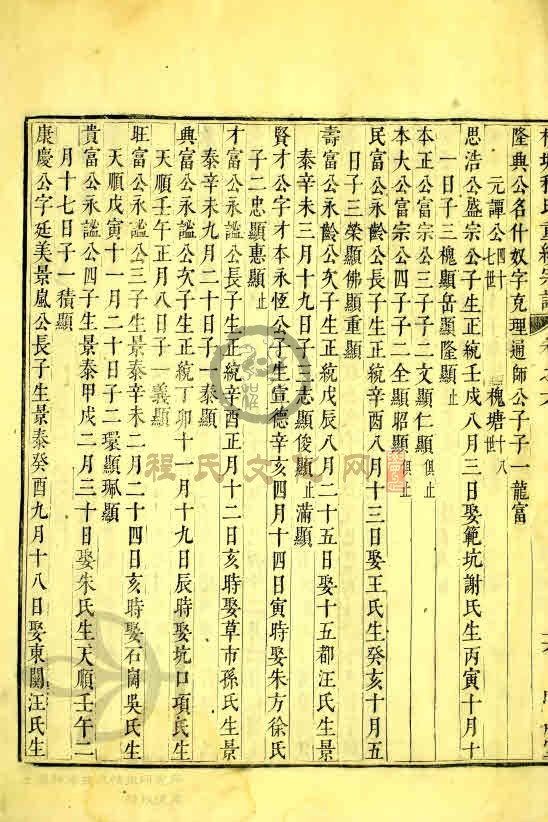 隆典公名什奴字克理通師公子子一龍富
元譚公四十七世 槐塘十八世
思浩公盛宗公子生正統壬戌八月三日娶範坑謝氏生丙寅十月十
一日子三槐顯岳顯隆顯止
本正公富宗公三子子二文顯仁顯俱止
本大公富宗公四子子二全顯昭顯俱止
民富公永齡公長子生正統辛酉八月十三日娶王氏生癸亥十月五
日子三榮顯佛顯重顯
壽富公永齡公次子生正統戊辰八月二十五日娶十五都汪氏生景
泰辛未三月十九日子三志顯俊顯止滿顯
賢才公字才本永恆公子生宣德辛亥四月十四日寅時娶朱方徐氏
子二忠顯惠顯止
才富公永謐公長子生正統辛酉正月十二日亥時娶草市孫氏生景
泰辛未九月二十日子一泰顯
典富公永謐公次子生正統丁卯十一月十九日辰時娶坑口項氏生
天順壬午正月八日子一義顯
旺富公永謐公三子生景泰辛未二月二十四日亥時娶石岡吳氏生
天順戊寅十一月二十日子二環顯珮顯
貴富公永謐公四子生景泰甲戌二月三十日娶朱氏生天順壬午二
月十七日子一積顯
康慶公字延美景嵐公長子生景泰癸酉九月十八日娶東關汪氏生
程氏文化网